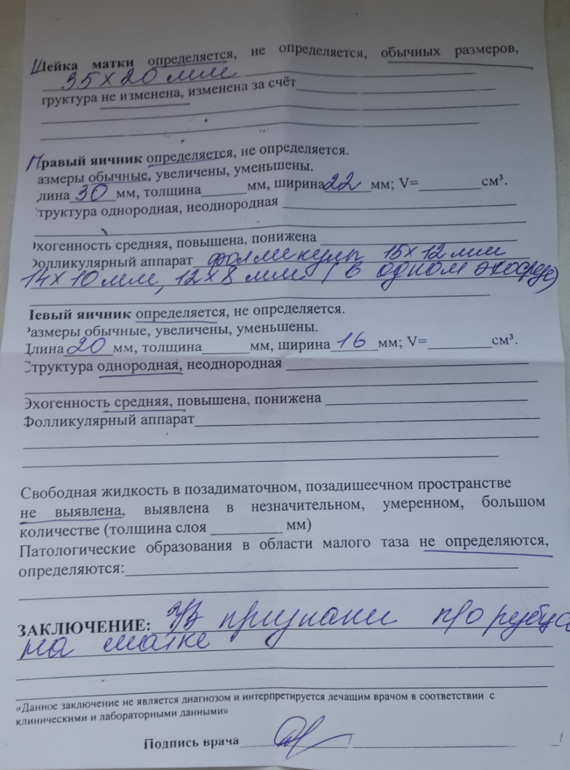 Шейка матки определяется, не определяется, обычных размеров,
35×20 мм
труктура не изменена, изменена за счёт
Правый яичник определяется, не определяется.
азмеры обычные, увеличены, уменьшены.
лина 30 мм, толщина мм, ширина 22 мм; V= см³.
труктура однородная, неоднородная
Эхогенность средняя, повышена, понижена
Фолликулярный аппарат фолликулы 15×12 мм
14×10 мм, 12×8 мм (в одном эхосрезе)
Левый яичник определяется, не определяется.
Размеры обычные, увеличены, уменьшены.
Длина 20 мм, толщина мм, ширина 16 мм; V= см³.
Структура однородная, неоднородная
Эхогенность средняя, повышена, понижена
Фолликулярный аппарат
Свободная жидкость в позадиматочном, позадишеечном пространстве
не выявлена, выявлена в незначительном, умеренном, большом
количестве (толщина слоя мм)
Патологические образования в области малого таза не определяются,
определяются:
ЗАКЛЮЧЕНИЕ: УЗ признаки рубца
на матке
«Данное заключение не является диагнозом и интерпретируется лечащим врачом в соответствии с
клиническими и лабораторными данными»
Подпись врача